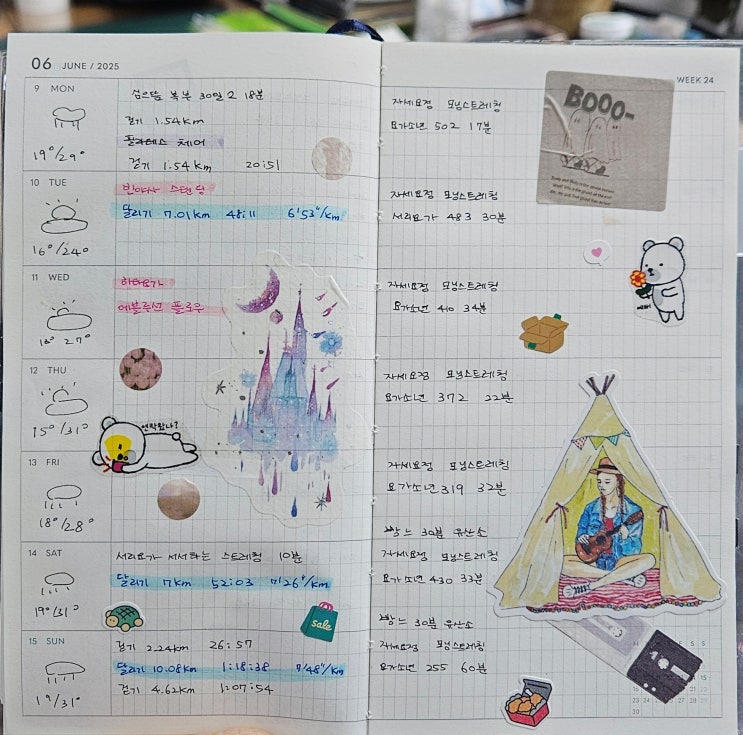 06 JUNE / 2025
9 MON
19°/29°
심으뜸 복부 30일 2 18분
걷기 1.54km
필라테스 체어
걷기 1.54km 20:51
10 TUE
16°/24°
빈야사 스탠딩
달리기 7.01km 48:11 6'53"/km
11 WED
27°
하타요가
에볼루션 플로우
12 THU
15°/31°
연락왔나?
13 FRI
18°/28°
14 SAT
19°/31°
서리요가 서서하는 스트레칭 10분
달리기 7km 52:03 7'26"/km
sale
15 SUN
19/31°
걷기 2.24km 26:57
달리기 10.08km 1:18:38 7'48"/km
걷기 4.62km 1:07:54
WEEK 24
자세요정 모닝스트레칭
요가소년 502 17분
BOOO~
자세요정 모닝스트레칭
서리요가 483 30분
자세요정 모닝스트레칭
요가소년 410 34분
자세요정 모닝스트레칭
요가소년 372 22분
자세요정 모닝스트레칭
요가소년 319 32분
빵느 30분 유산소
자세요정 모닝스트레칭
요가소년 430 33분
빵느 30분 유산소
자세요정 모닝스트레칭
요가소년 255 60분